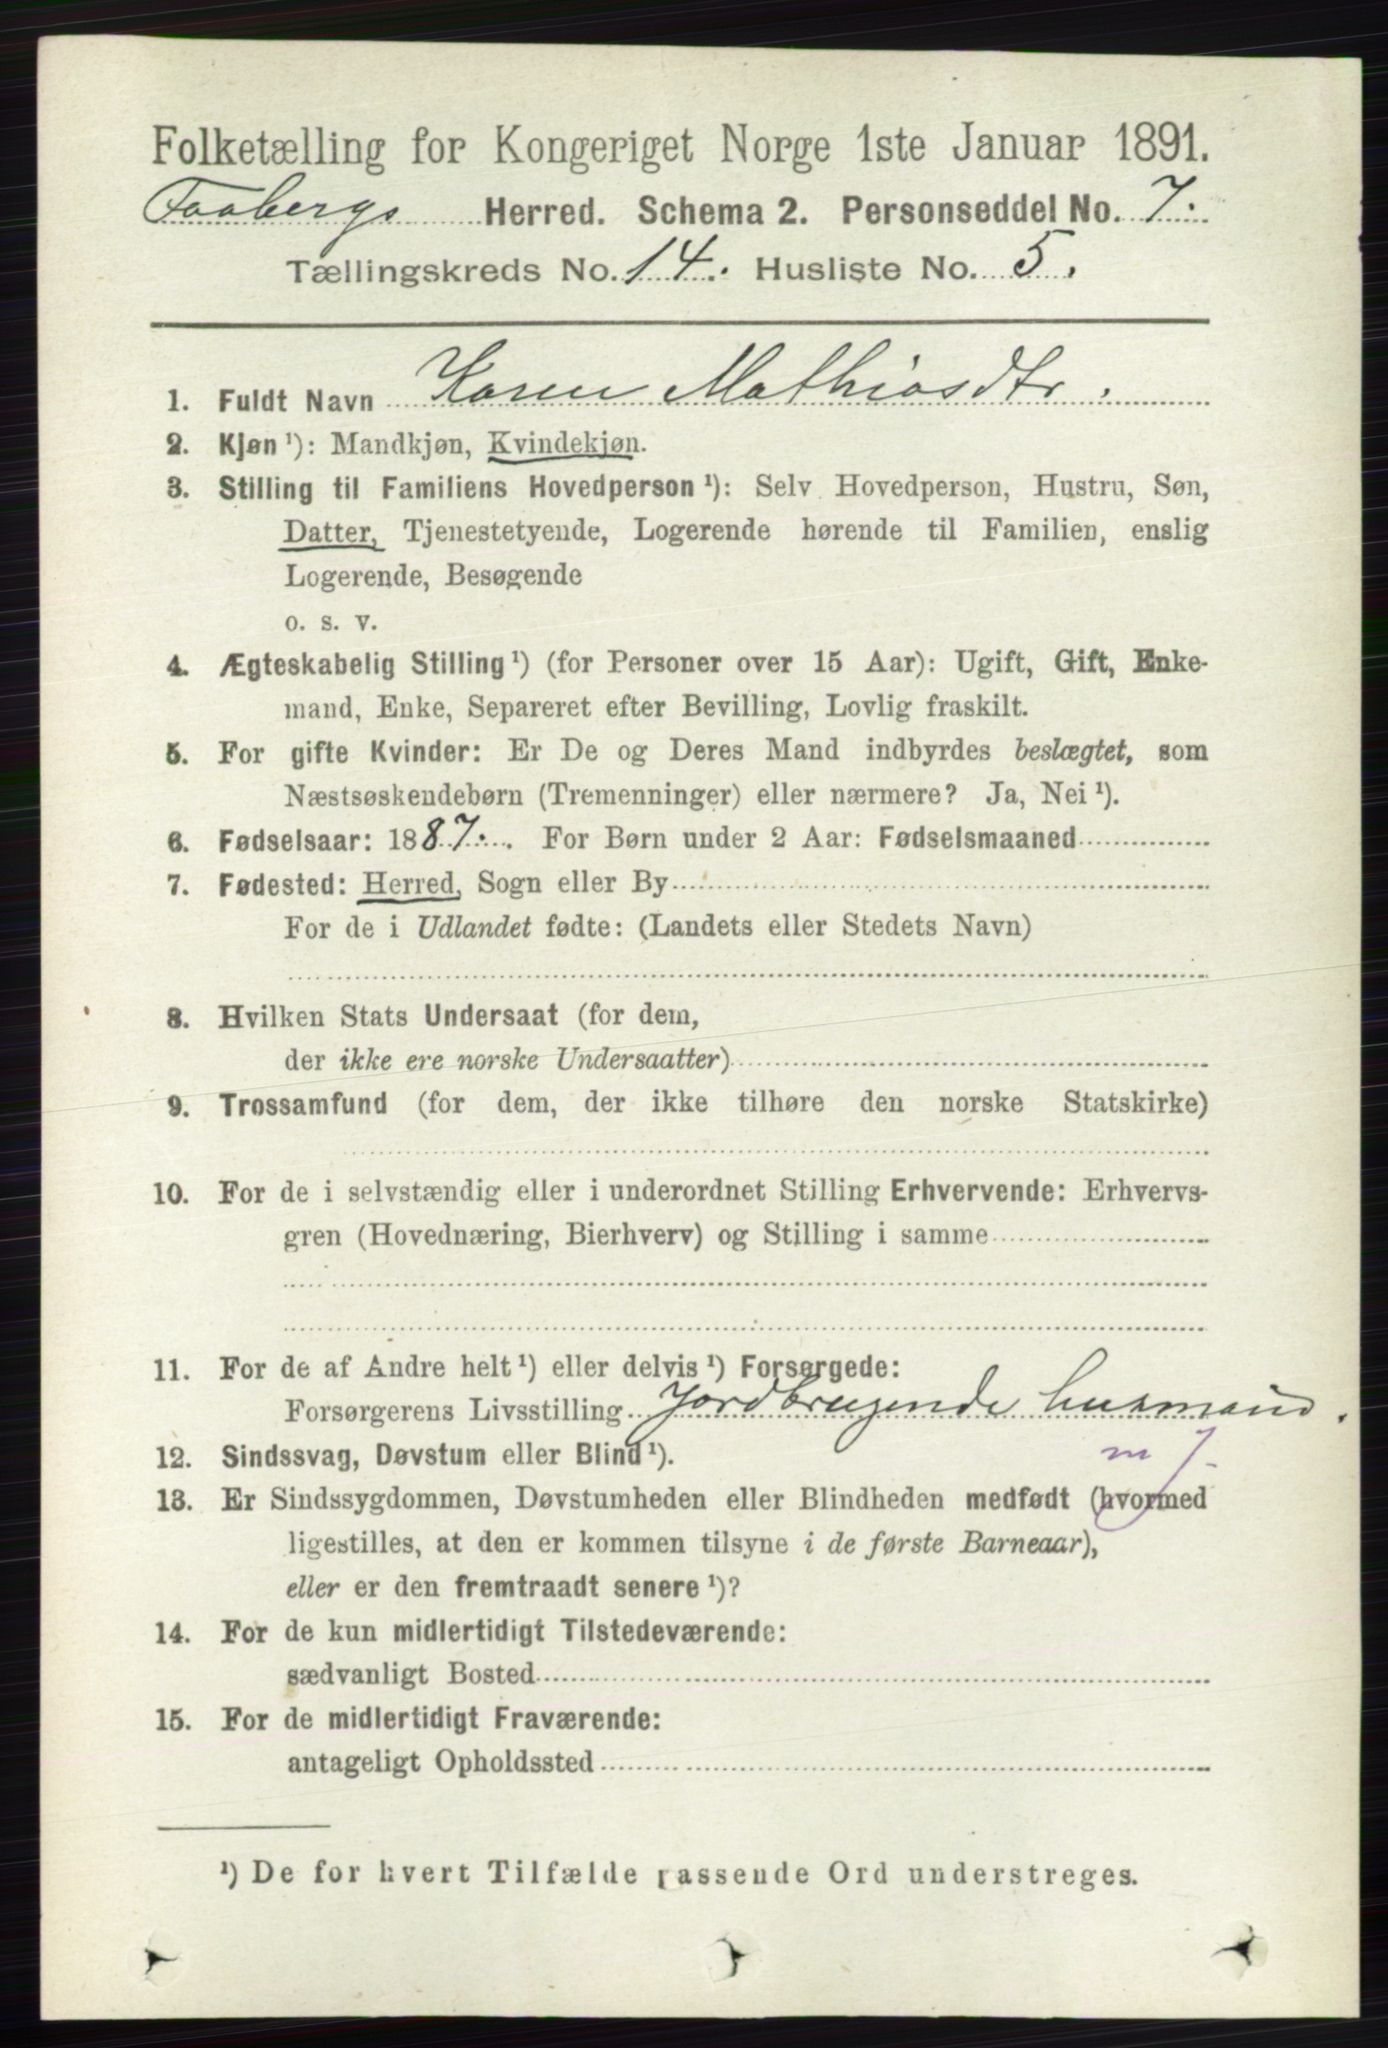 Folketælling for Kongeriget Norge 1ste Januar 1891.
Faabergs Herred. Schema 2. Personseddel No. 7.
Tællingskreds No. 14. Husliste No. 5.
1. Fuldt Navn Karen Mathiasdtr.
2. Kjøn ¹): Mandkjøn, Kvindekjøn.
3. Stilling til Familiens Hovedperson ¹): Selv Hovedperson, Hustru, Søn,
Datter, Tjenestetyende, Logerende hørende til Familien, enslig
Logerende, Besøgende
o. s. v.
4. Ægteskabelig Stilling ¹) (for Personer over 15 Aar): Ugift, Gift, Enke-
mand, Enke, Separeret efter Bevilling, Lovlig fraskilt.
5. For gifte Kvinder: Er De og Deres Mand indbyrdes beslægtet, som
Næstsøskendebørn (Tremenninger) eller nærmere? Ja, Nei ¹).
6. Fødselsaar: 1887. For Børn under 2 Aar: Fødselsmaaned
7. Fødested: Herred, Sogn eller By
For de i Udlandet fødte: (Landets eller Stedets Navn)
8. Hvilken Stats Undersaat (for dem,
der ikke ere norske Undersaatter)
9. Trossamfund (for dem, der ikke tilhøre den norske Statskirke)
10. For de i selvstændig eller i underordnet Stilling Erhvervende: Erhvervs-
gren (Hovednæring, Bierhverv) og Stilling i samme
11. For de af Andre helt ¹) eller delvis ¹) Forsørgede:
Forsørgerens Livsstilling Jordbrugende husmand.
12. Sindssvag, Døvstum eller Blind ¹). m J.
13. Er Sindssygdommen, Døvstumheden eller Blindheden medfødt (hvormed
ligestilles, at den er kommen tilsyne i de første Barneaar),
eller er den fremtraadt senere ¹)?
14. For de kun midlertidigt Tilstedeværende:
sædvanligt Bosted
15. For de midlertidigt Fraværende:
antageligt Opholdssted
¹) De for hvert Tilfælde passende Ord understreges.